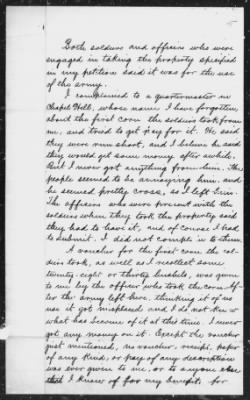 Both soldiers and officers who were
engaged in taking the property specified
in my petition said it was for the use
of the army.
I complained to a quartermaster in
Chapel Hill, whose name I have forgotten,
about the first corn the soldiers took from
me, and tried to get pay for it. He said
they were run short, and I believe he said
they would get some money after while.
But I never got anything from him. The
people seemed to be annoying him, and
he seemed pretty cross, so I left him.
The officers who were present with the
soldiers when they took the property said
they had to have it, and of course I had
to submit. I did not complain to them.
A voucher for the first corn the sol-
diers took, as well as I recollect some
twenty-eight or thirty bushels, was given
to me by the officer who took the corn. Af-
ter the army left here, thinking it of no
use it got misplaced and I do not know
what has become of it at this time. I never
got any money on it. Except the voucher
just mentioned, no voucher, receipt, paper
of any kind, or pay of any description
was ever given to me, or to anyone else
that I know of for my benefit, for